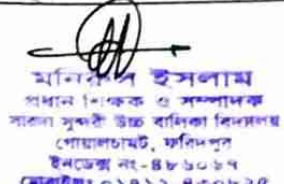 মনিরুল ইসলাম
প্রধান শিক্ষক ও সম্পাদক
সারদা সুন্দরী উচ্চ বালিকা বিদ্যালয়
গোয়ালচামট, ফরিদপুর
ইনডেক্স নং-৪৮৬০৮৭
মোবাইলঃ ০১৭১২